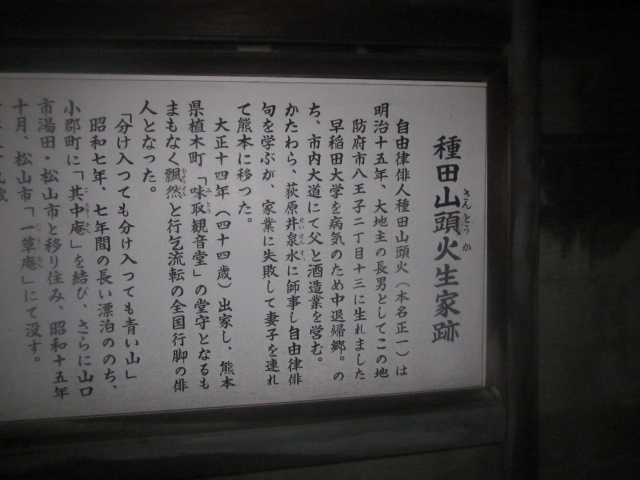 種田山頭火生家跡
さんとうか
自由律俳人種田山頭火(本名正一)は
明治十五年、大地主の長男としてこの地
防府市八王子二丁目十三に生れました
早稲田大学を病気のため中退帰郷。の
ち、市内大道にて父と酒造業を営む。
かたわら、荻原井泉水に師事し自由律俳
せいせんすい
句を学ぶが、家業に失敗して妻子を連れ
て熊本に移つた。
大正十四年(四十四歳)出家し、熊本
県植木町「味取観音堂」の堂守となるも
まもなく飄然と行乞流転の全国行脚の俳
人となった。
「分け入つても分け入つても青い山」
昭和七年、七年間の長い漂泊ののち、
小郡町に「其中庵」を結び、さらに山口
市湯田・松山市と移り住み、昭和十五年
十月、松山市「一草庵」にて没す。